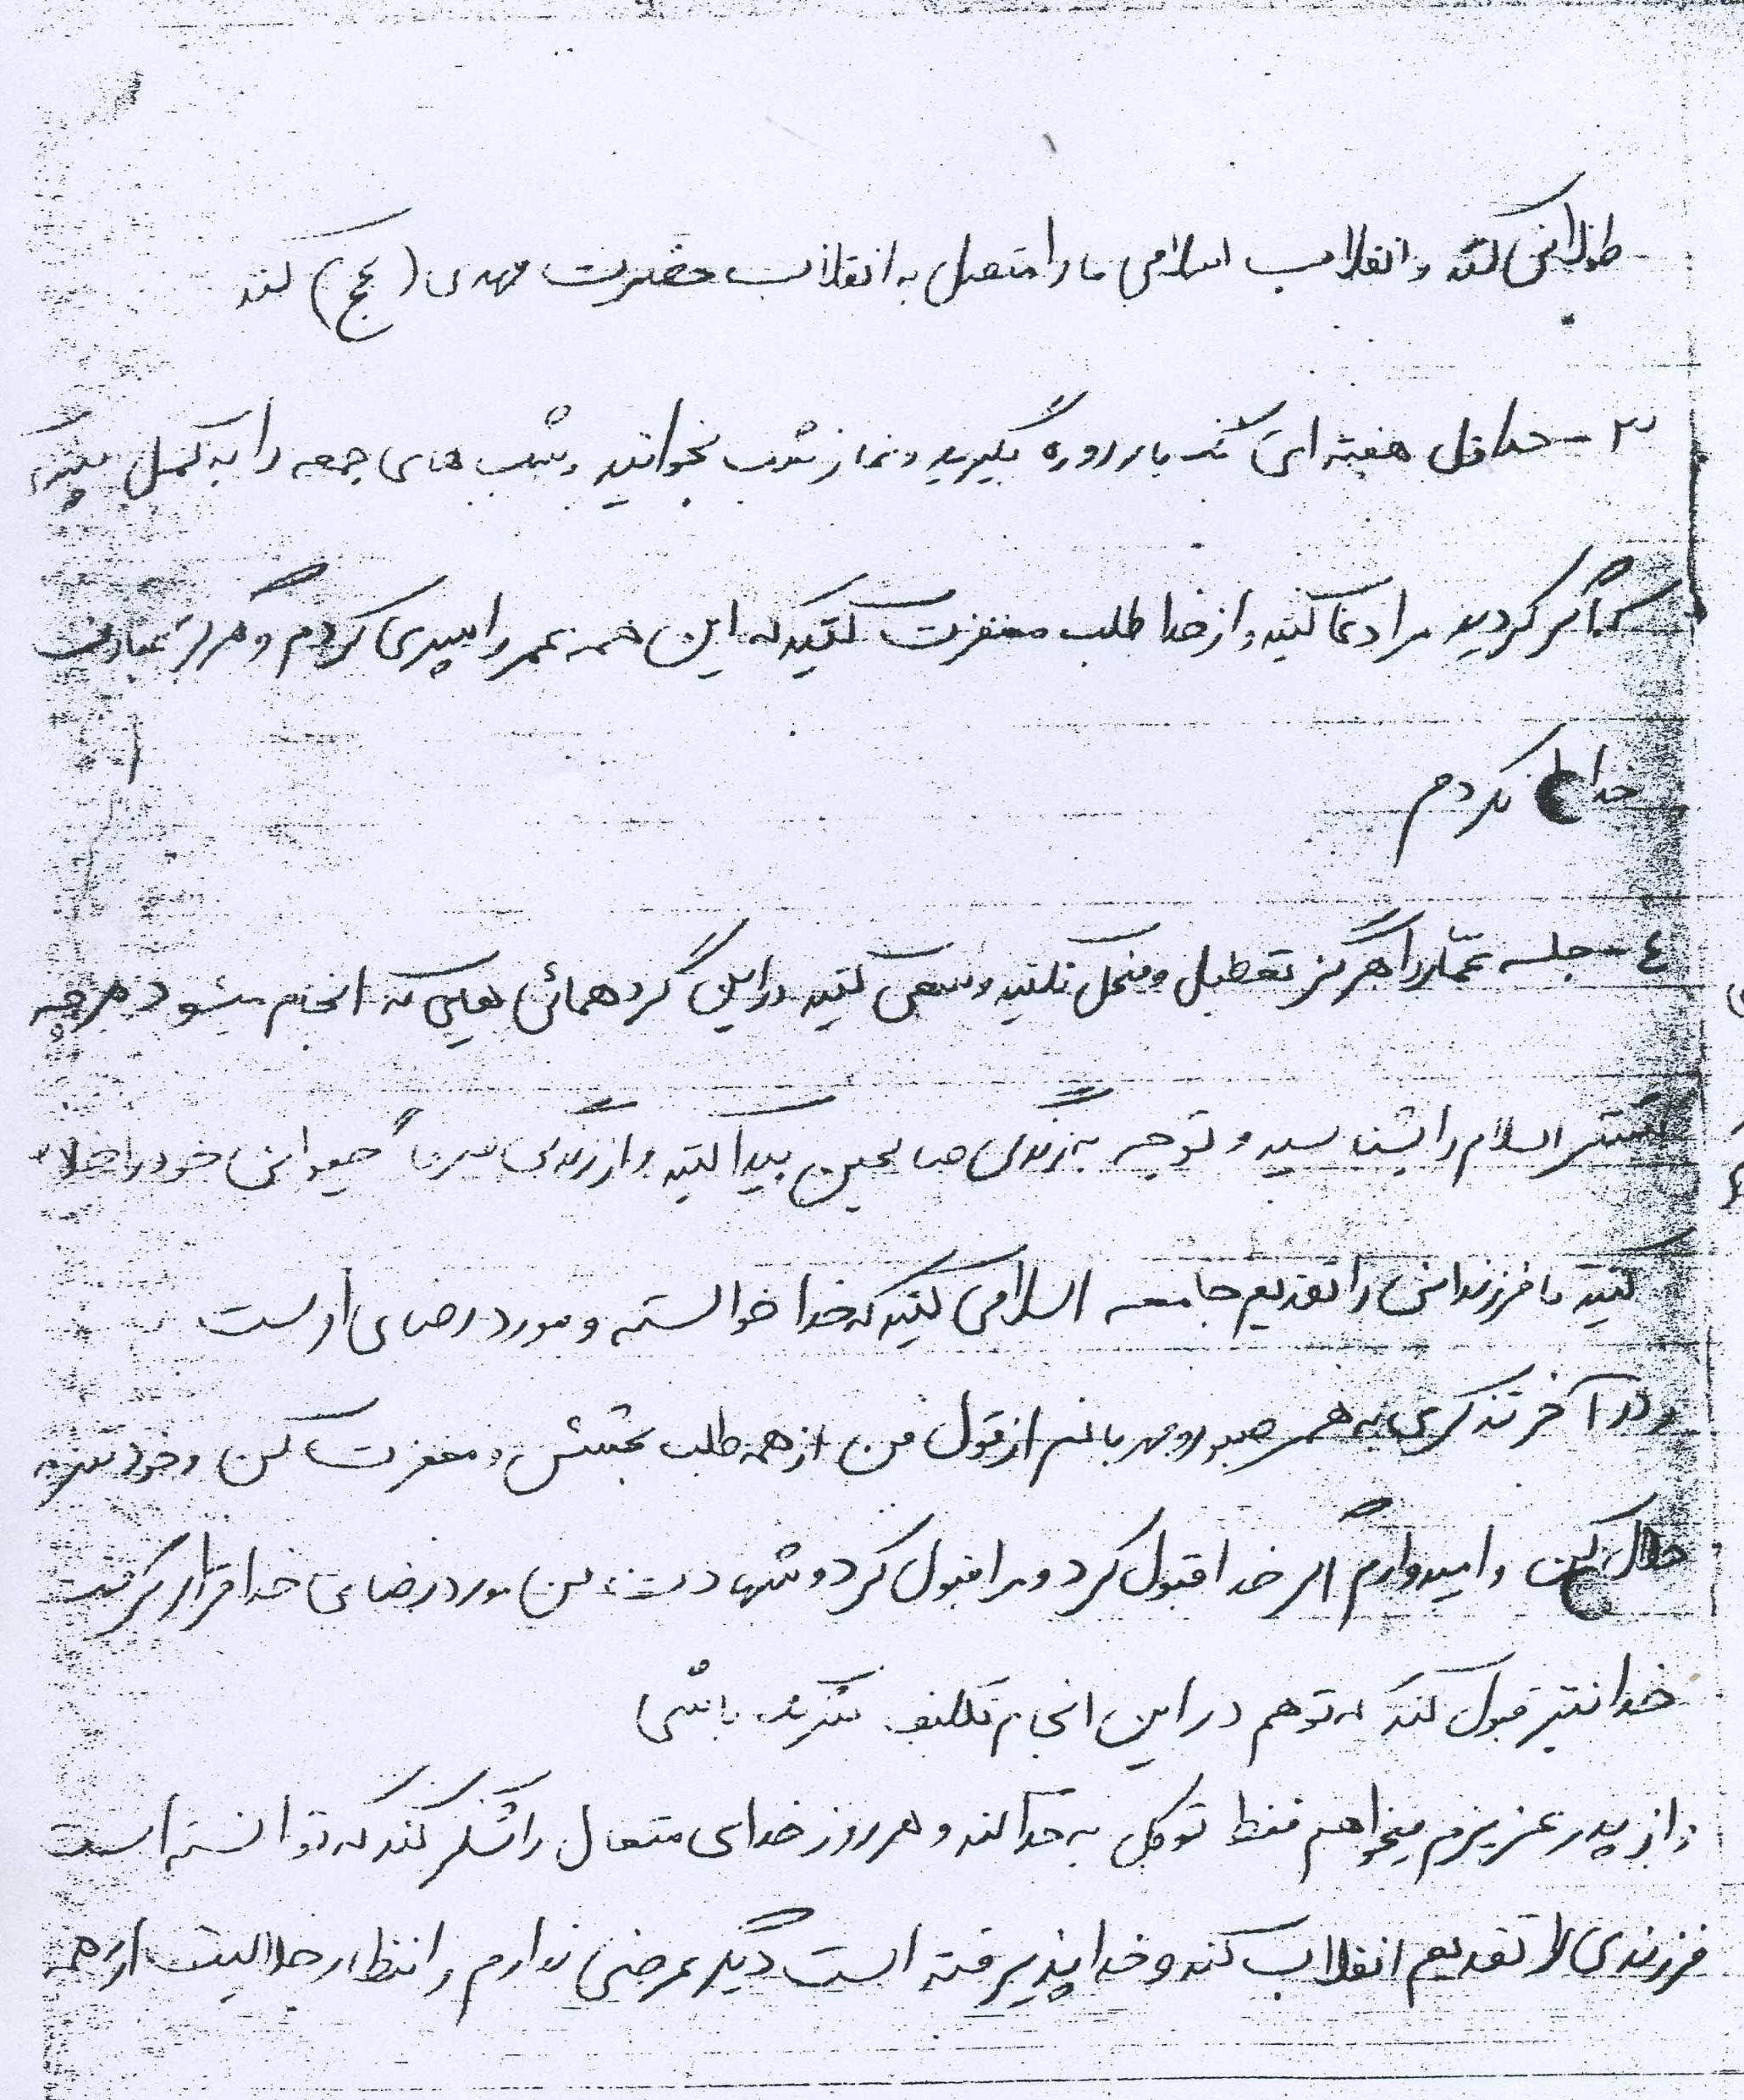 طولانی کند و انقلاب اسلامی ما را متصل به انقلاب حضرت مهدی (عج) کند
۳- حداقل هفته ای یک بار روزه بگیرید و نماز شب بخوانید و شب های جمعه را به کمیل بروید
اگر کردید مرا دعا کنید و از خدا طلب مغفرت کنید که این همه عمر را سپری کردم و هرگز عبادت
خدا را نکردم
٤- جلسه عمار را هرگز تعطیل و منحل نکنید و سعی کنید در این گردهمائی هایی که انجام میشود هرچه
بیشتر اسلام را بشناسید و توجه به زندگی صالحین پیدا کنید و از زندگی صرفاً حیوانی خود را خلاص
کنید تا فرزندانی را تقدیم جامعه اسلامی کنید که خدا خواسته و مورد رضای اوست
و در آخر تذکری به همسر صبور و مهربانم از قول من از همه طلب بخشش و مغفرت کن و خودت مرا
حلال کن و امیدوارم اگر خدا قبول کرد و مرا قبول کرد و شهادت من مورد رضای خدا قرار گرفت
خدا نیز قبول کند که تو هم در این انجام تکلیف شریک باشی
و از پدر عزیزم میخواهم فقط توکل به خدا کند و هر روز خدای متعال را شکر کند که توانسته است
فرزندی را تقدیم انقلاب کند و خدا پذیرفته است دیگر عرضی ندارم و انتظار حلالیت از همه